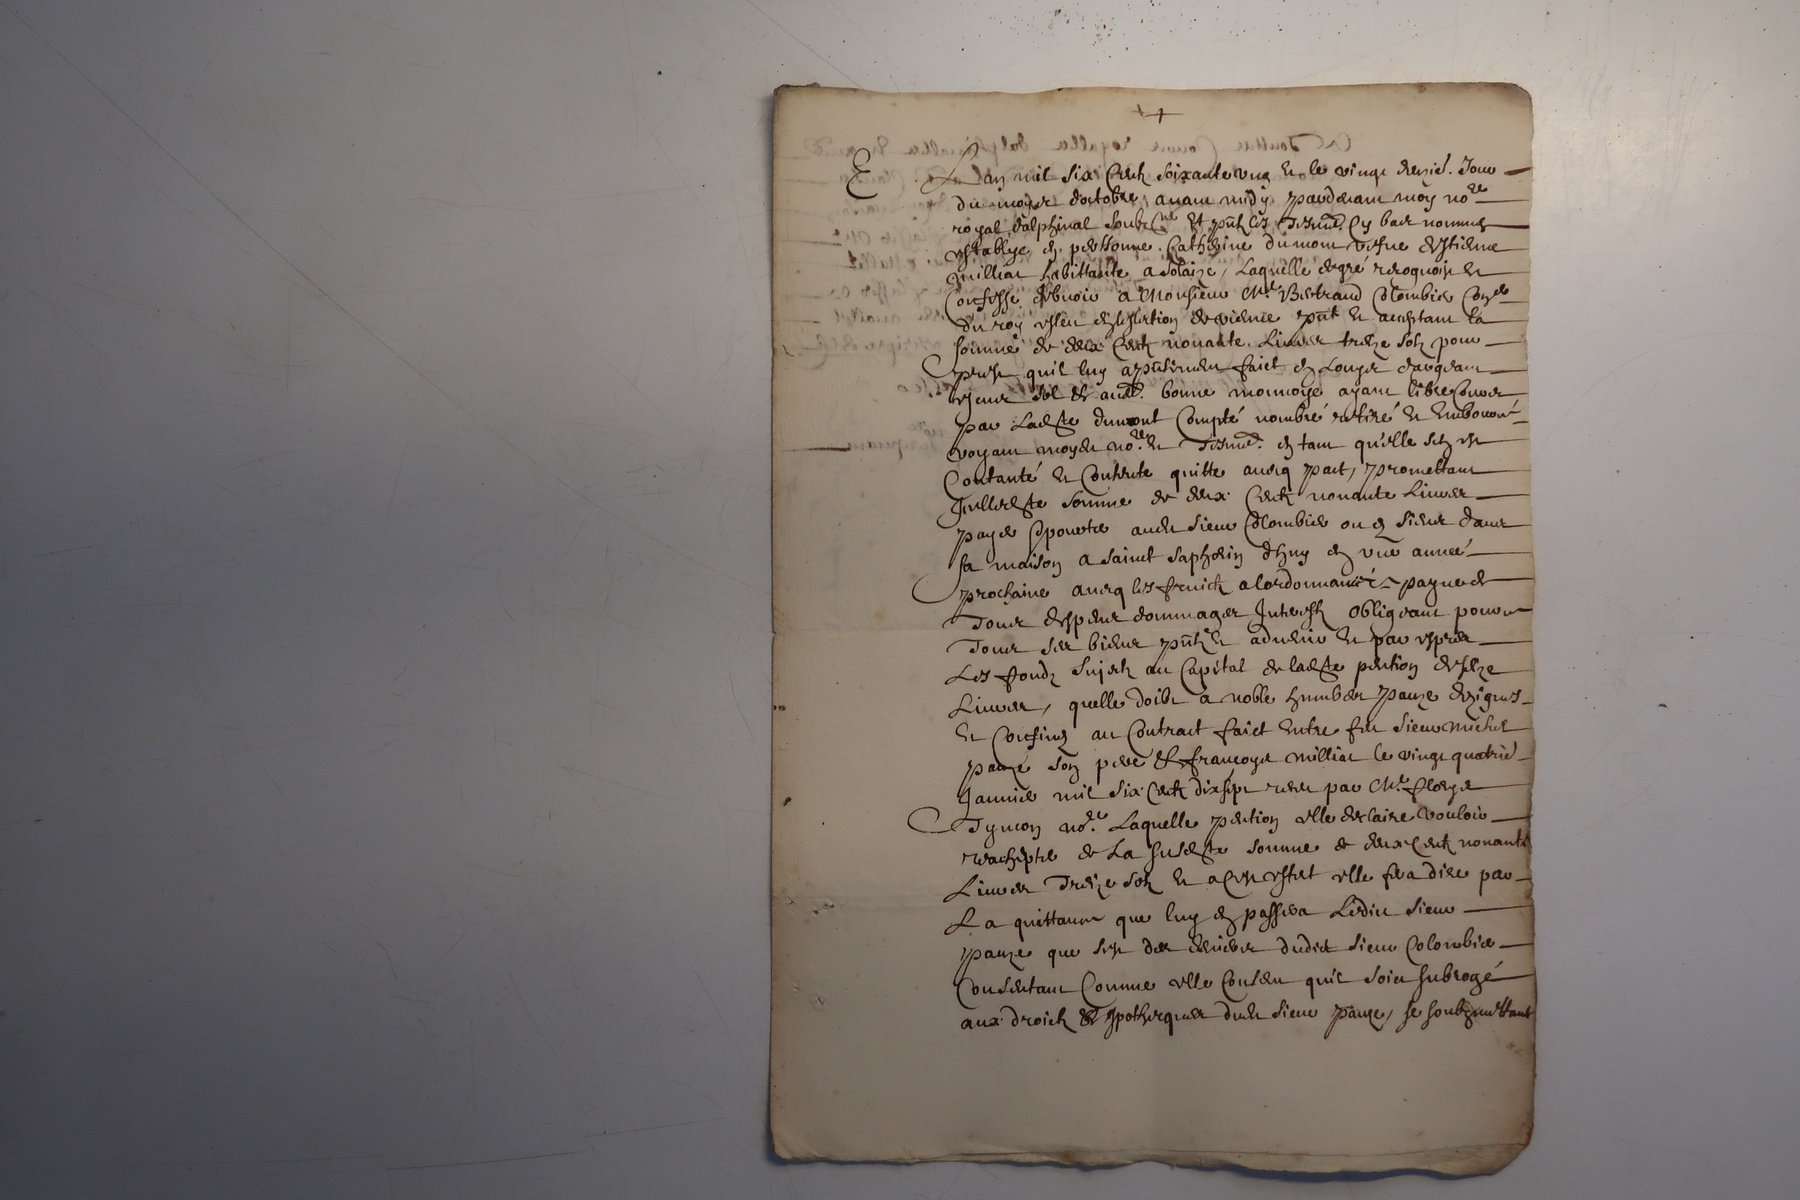 L'an mil six centz soixante ung et le vingt deuzie. Jour
du moys d'octobre, avant midy pardevant moy nore
royal dalphinal soubzne et pntz les tesmz. cy bas nommes
establye en personne Catherine dumont vefve d'estienne
milliat habittante a Solaize, Laquelle de gré recognoist et
Confesse debvoir a Monsieur Mre. Bertrand Colombier Conser
du roy esleu en l'eslection de vienne pnt et acceptant la
somme de deux centz nonante Livres treize solz pour
prest qu'il luy a pntement faict en Louys d'argent
escus sol et autre. bonne monnoye ayant libre cours
par Ladste dumont Compté nombré retiré et Emboursé
voyant moydt nore. et tesmz. en tant qu'elle s'en est
Contanté et Contente quitte avecq pact, promettant
Icelledste somme de deux centz nonante Livres
payer Sy pourtre audt sieur Colombier ou en siens dans
sa maison a sainct Saphorin d'huy en une année
prochaine avecq les fruictz a l'ordonnance payne de
Tous despens dommages Interestz obligeant pour ce
Tous ses biens pntz et advenir et par exprès
Les fondz sujectz au Capital de ladste pention de seze
Livres, quelle doibt a noble humbert pauze designes
et Confinez au Contract faict entre feu sieur michel
pauze son pere et françoys milliat le vingt quatrie
Janvier mil six centz dixsept receu par Me. Floryz
Tymon nore. Laquelle pention elle desclaire vouloir
reachepter de La susdste somme de deux centz nonante
Livres Treize solz et a cest effect elle fera dire par
La quittance que luy en passera Ledict sieur
pauze que s'est des deniers dudict sieur Colombier
Consentant Comme elle Consent qu'il soict subrogé
aux droictz et hypotheques dudt sieur pauze, se soubzmettant